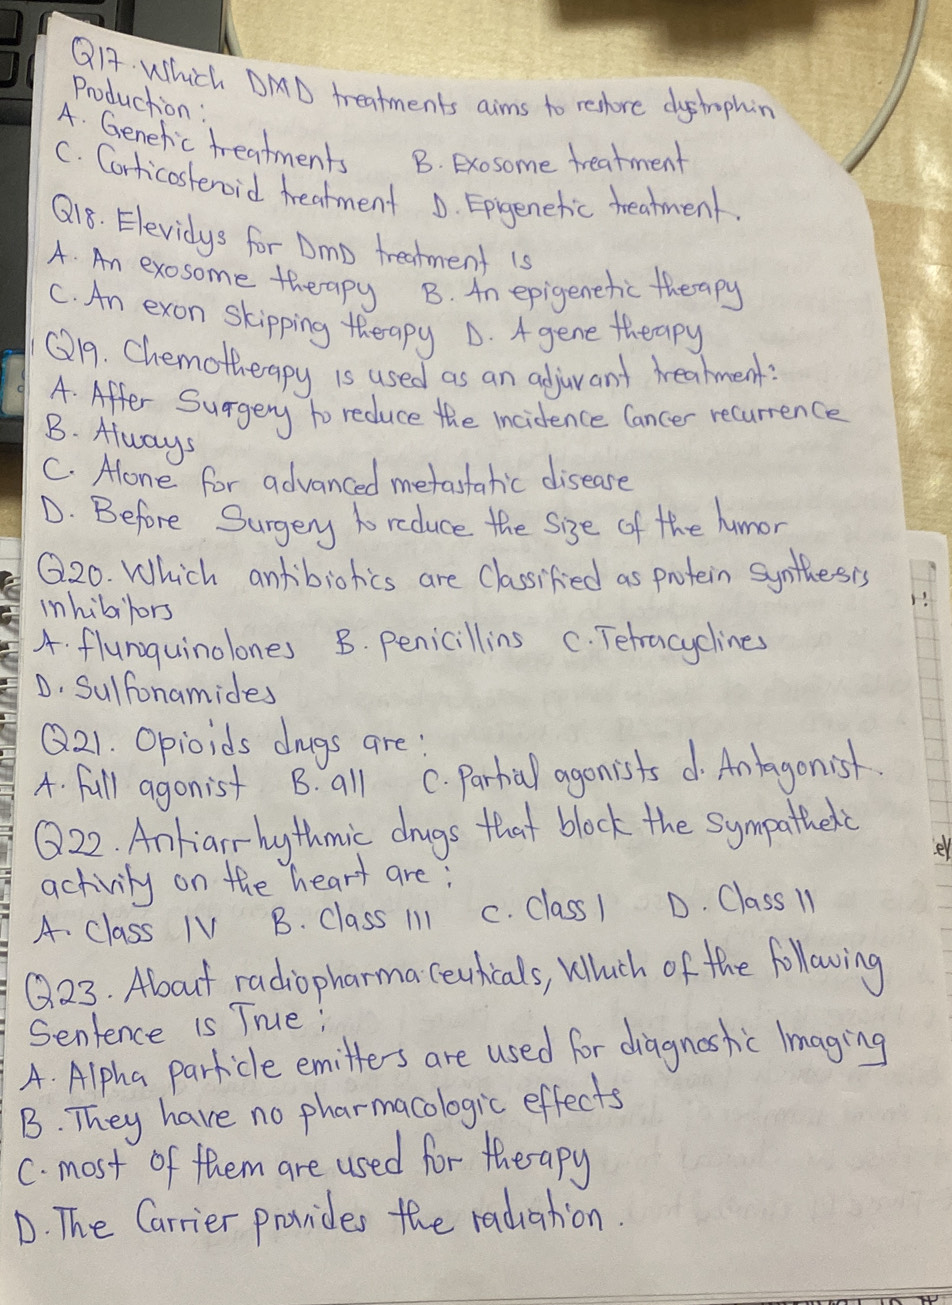 Q17. Which DMD treatments aims to restore dystrophin
Production:
A. Genetic treatments B. Exosome treatment
C. Corticosteroid treatment D. Epigenetic treatment.
Q18. Elevidys for DmD treatment is
A. An exosome therapy B. An epigenetic therapy
C. An exon skipping therapy D. A gene therapy
Q19. Chemotherapy is used as an adjuvant treatment:
A. After Surgery to reduce the incidence Cancer recurrence
B. Always
C. Alone for advanced metastatic disease
D. Before Surgery to reduce the size of the tumor
Q20. Which antibiotics are Classified as protein synthesis
inhibitors
A. fluroquinolones B. penicillins C. Tetracyclines
D. Sulfonamides
Q21. Opioids drugs are:
A. full agonist B. all C. Partial agonists d. Antagonist.
Q22. Antiarrhythmic drugs that block the sympathetic
activity on the heart are:
A. Class IV B. Class III C. Class I D. Class II
Q23. About radiopharmaceuticals, Which of the following
Sentence is True:
A. Alpha particle emitters are used for diagnostic Imaging
B. They have no pharmacologic effects
C. most of them are used for therapy
D. The Carrier provides the radiation.